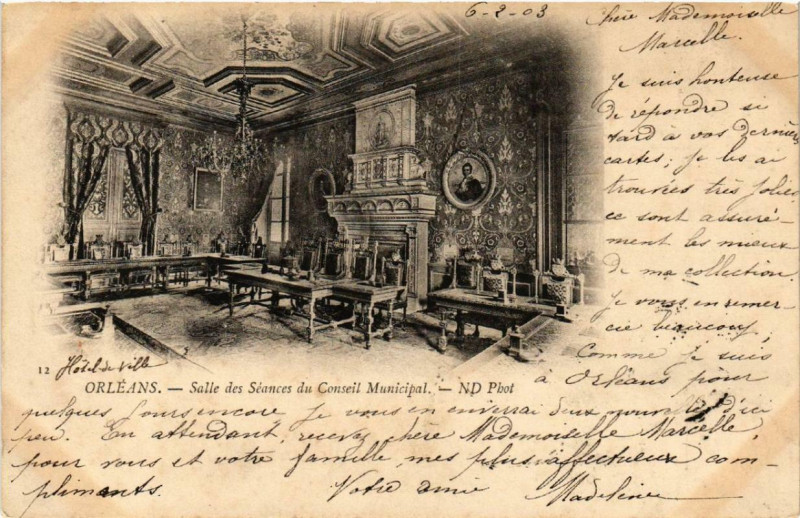 6-2-03
Chère Mademoiselle
Marcelle.
Je suis honteuse
de répondre si
tard à vos dernières
cartes; je les ai
trouvées très jolies
ce sont assuré-
ment les mieux
de ma collection.
Je vous en remer-
cie beaucoup,
Comme je suis
à Orléans pour
12 Hôtel de Ville
ORLÉANS. — Salle des Séances du Conseil Municipal. — ND Phot
quelques jours encore je vous en enverrai deux nouvelles d'ici
peu. En attendant, recevez chère Mademoiselle Marcelle,
pour vous et votre famille, mes plus affectueux com-
pliments. Votre amie Madeleine